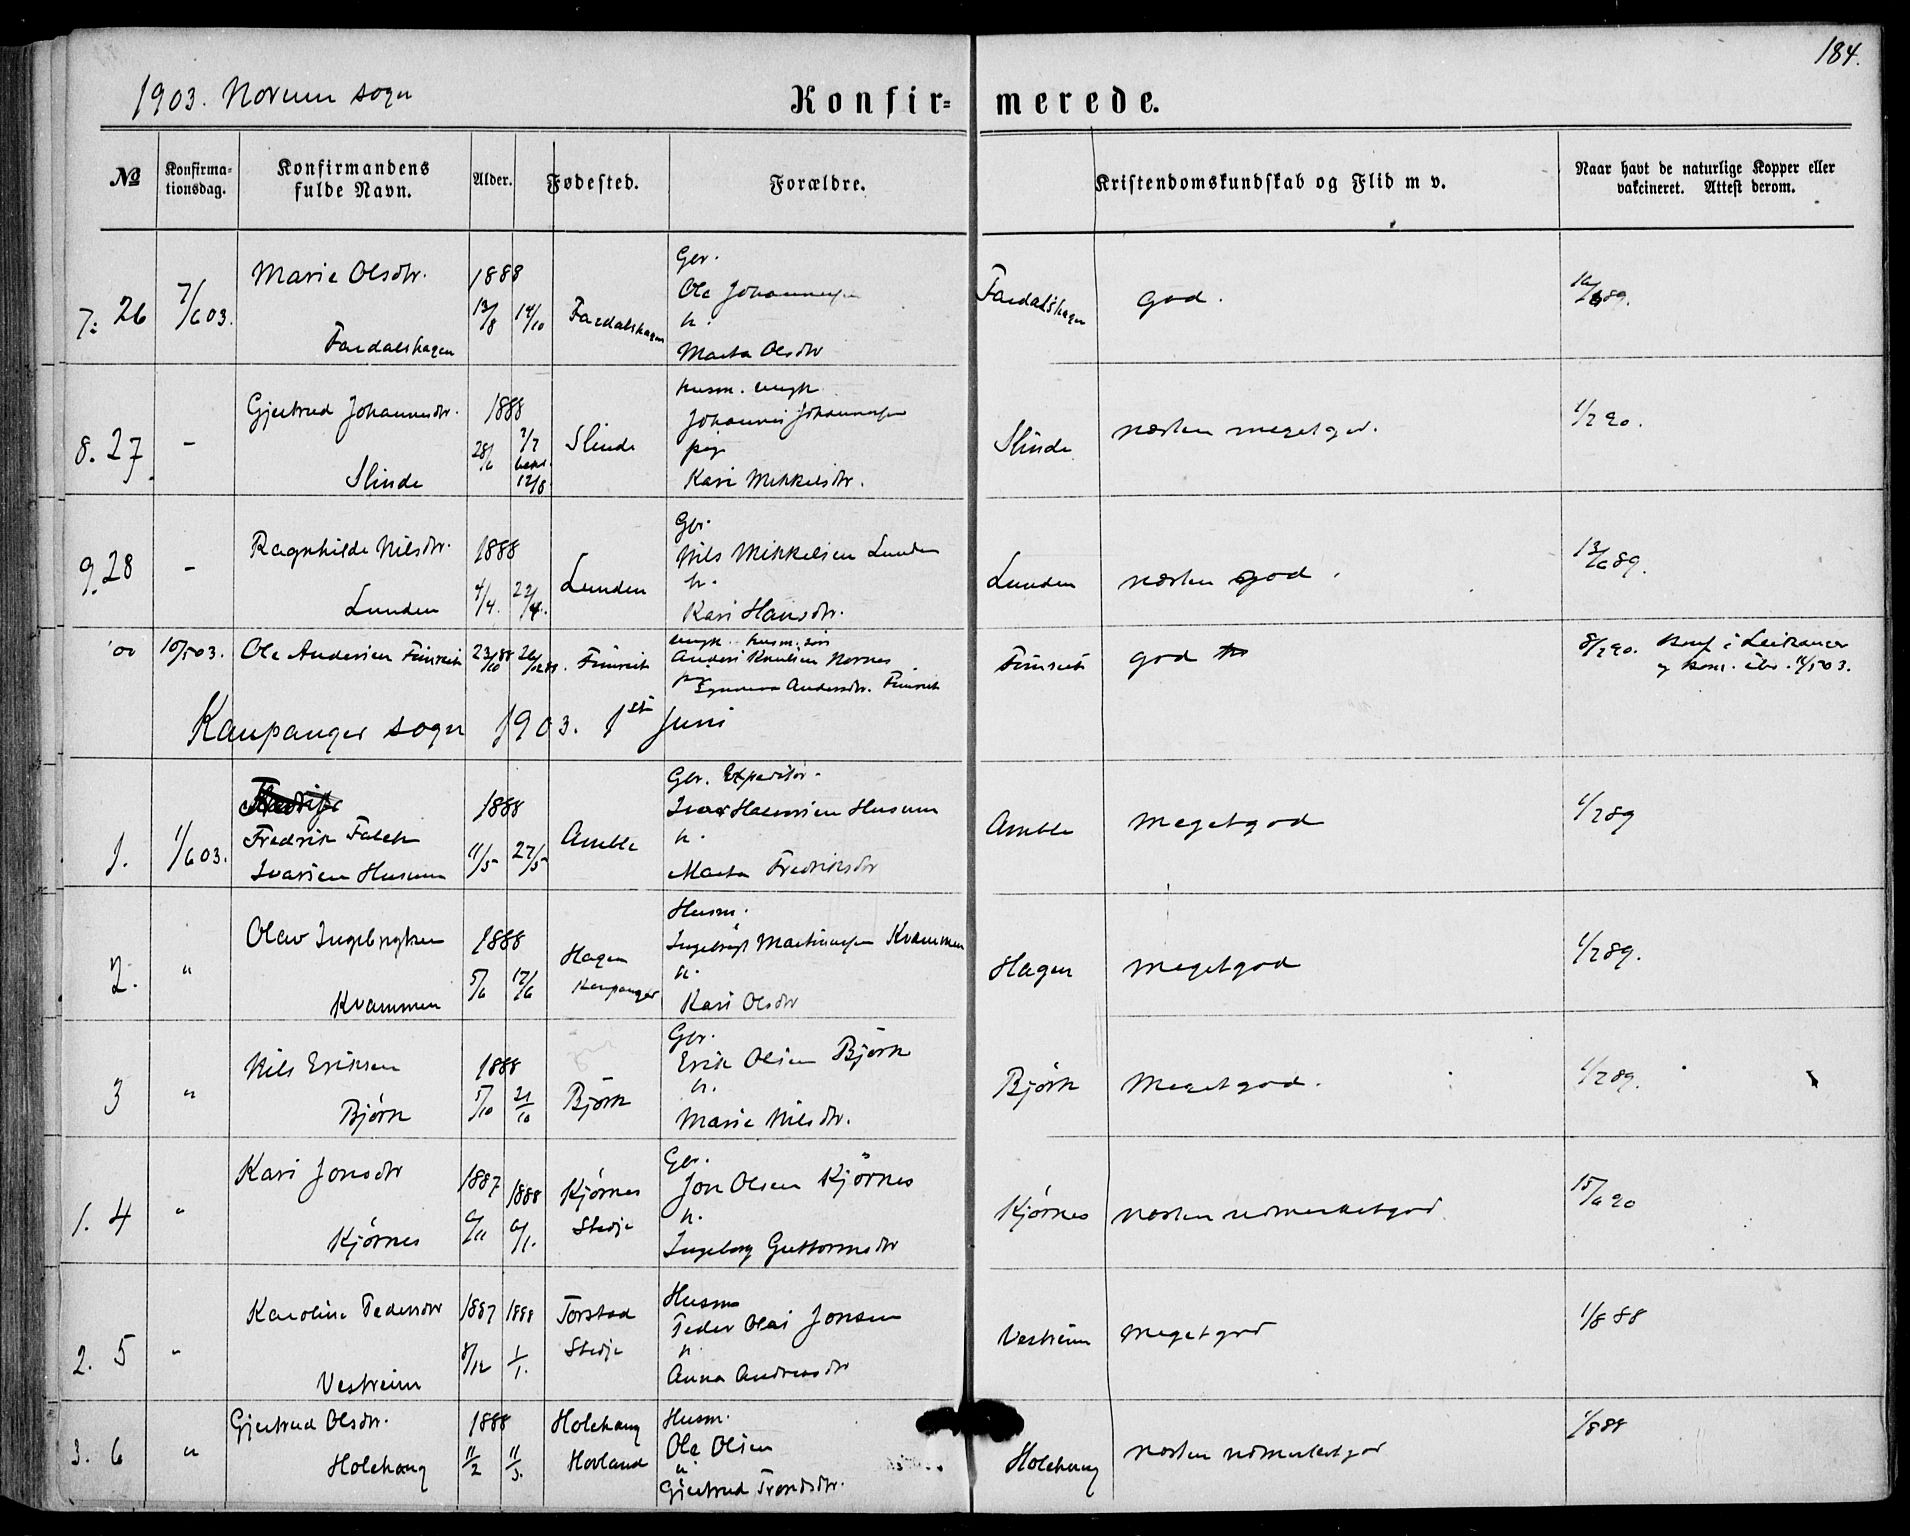 184.
1903. Norum sogn
Konfir= merede.
No
Konfirma-
tionsdag.
Konfirmandens
fulde Navn.
Alder.
Fødested.
Forældre.
Kristendomskundskab og Flid m v.
Naar havt de naturlige Kopper eller
vakcineret. Attest derom.
7. 26
7/6 03.
Marie Olsdtr.
Fardalshagen
1888
13/8 14/10
Fardalshagen
Gbr.
Ole Johannesen
h.
Marta Olsdtr
Fardalshagen
god.
89.
8. 27
-
Gjertrud Johannesdtr.
Slinde
1888
28/6
12/8
Slinde
husm. ungk.
Johannes Johannesen
pige
Kari Mikkelsdtr.
Slinde
næsten megetgod.
1/7 90.
9. 28
-
Ragnhilde Nilsdtr.
Lunden
1888
4/4. 22/4.
Lunden
Gbr.
Nils Mikkelsen Lunden
h.
Kari Hansdtr.
Lunden
næsten god.
13/6 89.
10/5 03.
Ole Andersen Fimreit
Fimreit
ungk. husm. søn
Anders Knudsen Nornes
pige
Andersdtr. Fimreit
Fimreit
god
8/7 90.
Konf i Leikanger
Kaupanger sogn 1903. 1ste Juni
1.
1/6 03.
Fredrik Falck
Ivarsen Husum
1888
11/5 27/5
Amble
Gbr. Expeditør.
Ivar Halvorsen Husum
h.
Marta Fredriksdtr
Amble
megetgod
1/7 89
2.
"
Olav Ingebrigtsen
Kvammen
1888
5/6 17/6
Hagen
Kaupanger
Husm.
Ingebrigt Martinusen Kvammen
h.
Kari Olsdtr
Hagen
megetgod
1/7 89.
3
"
Nils Eriksen
Bjørk
1888
5/10 21/10
Bjørk
Gbr.
Erik Olsen Bjørk
h.
Marie Nilsdtr.
Bjørk
Megetgod.
1/7 89.
1. 4
"
Kari Jonsdtr
Kjørnes
1887 1888
6/11 6/1.
Kjørnes
Stedje
Gbr.
Jon Olsen Kjørnes
h.
Ingeborg Guttormsdtr
Kjørnes
næsten udmerketgod
15/6 90
2. 5
"
Karoline Pedersdtr
Vestreim
1887 1888
8/12 1/1.
Torstad
Stedje
Husm
Peder Olai Jonsen
h.
Anna Andreasdtr
Vestreim
megetgod
1/8 88
3. 6
"
Gjertrud Olsdtr.
Holehaug
1888
11/2 11/3.
Holehaug
Hovland
Husm.
Ole Olsen
h
Gjertrud Trondsdtr.
Holehaug
næsten udmerketgod
1/8 88